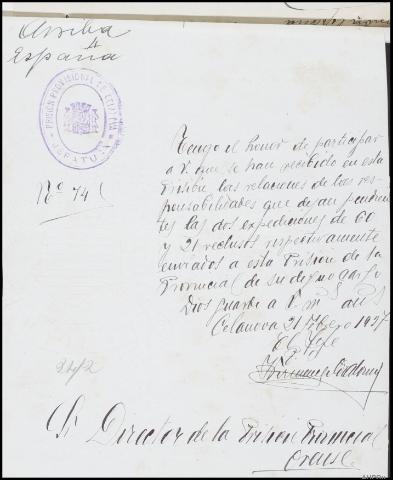 Arriba
España
PRISIÓN PROVISIONAL DE CELANOVA
JEFATURA
Nº 741
Tengo el honor de participar
a V. que se han recibido en esta
Prisión las relaciones de las res-
ponsabilidades que dejan pendien-
tes las dos expediciones de 60
y 21 reclusos respectivamente
enviados a esta Prisión de la
Provincial de su digno cargo
Dios guarde a V. m s as
Celanova 21 Febrero 1937
El Jefe
Sr Director de la Prisión Provincial
Orense.